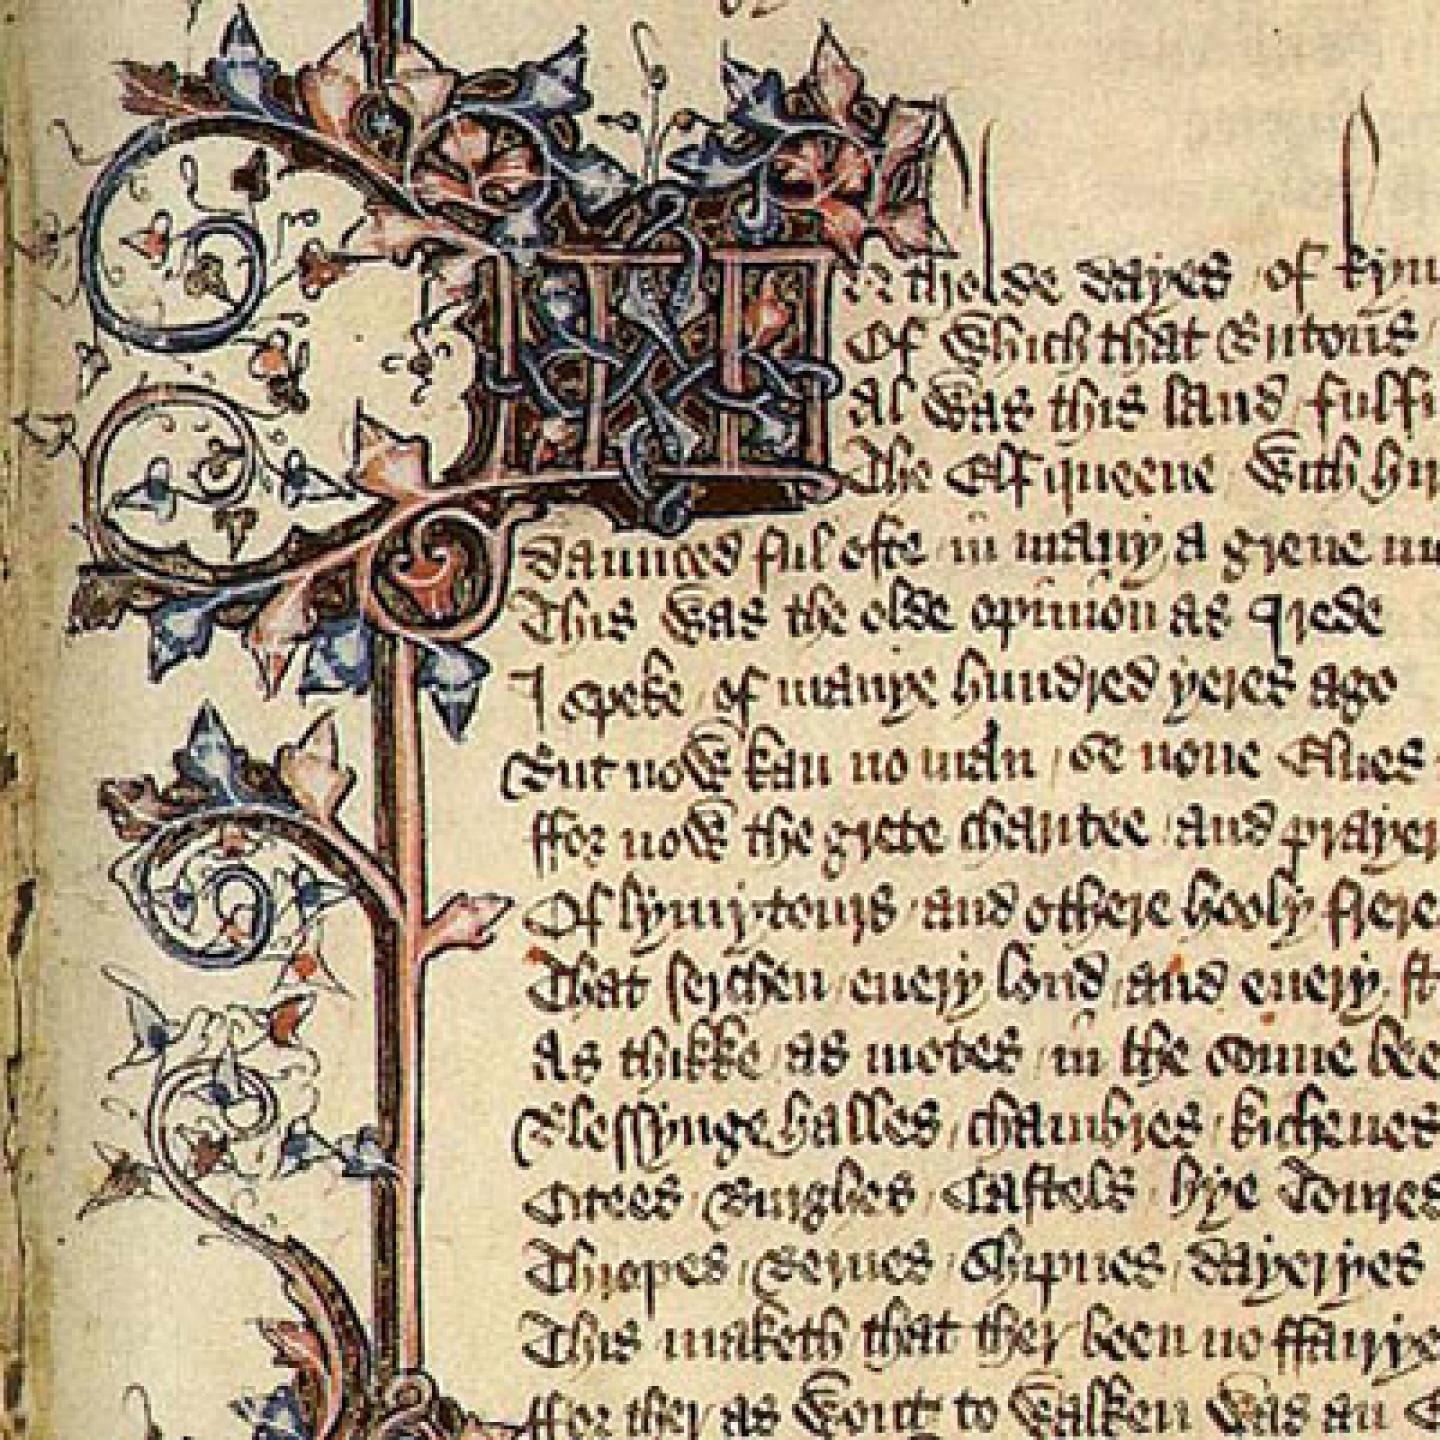 IN tholde dayes / of kyn
Of which that Britons
Al was this land / fulfi
The Elf queene / with hir
Daunced ful ofte / in many a grene m
This was the olde opinion as I rede
I speke / of manye hundred yeres ago
But now kan no man / se none Elues
ffor now the grete charitee / and prayer
Of lymytours / and othere hooly frere
That serchen / euery lond / and euery st
As thikke / as motes / in the sonne bee
Blessynge halles / chambres / kichenes
Citees / Burghes / Castels / hye Toures
Thropes / Bernes / Shipnes / dayeryes
This maketh that they been no ffairye
ffor they as wont to walken was an E